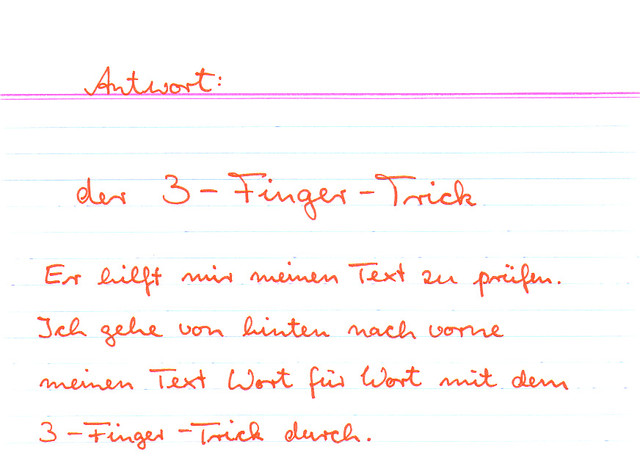 Antwort:
der 3-Finger-Trick
Er hilft mir meinen Text zu prüfen.
Ich gehe von hinten nach vorne
meinen Text Wort für Wort mit dem
3-Finger-Trick durch.